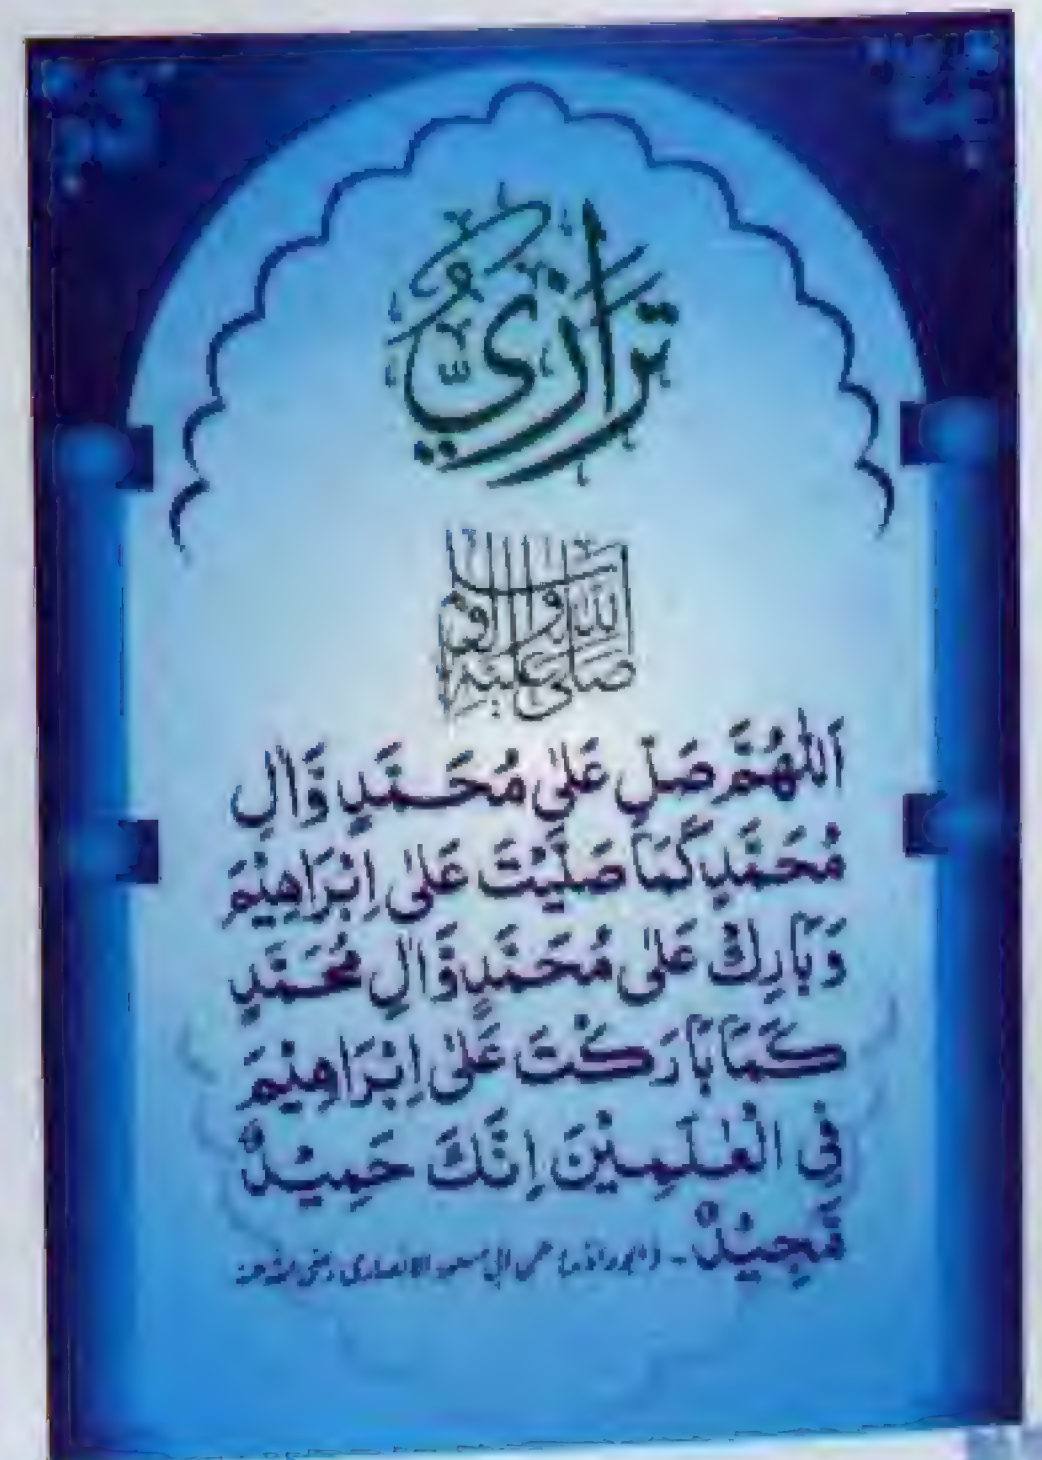 ترازيُّ
صلى الله عليه واله وسلم
اَللّٰهُمَّ صَلِّ عَلٰى مُحَمَّدٍ وَّاٰلِ
مُحَمَّدٍ كَمَا صَلَّيْتَ عَلٰى اِبْرَاهِيْمَ
وَبَارِكْ عَلٰى مُحَمَّدٍ وَّاٰلِ مُحَمَّدٍ
كَمَا بَارَكْتَ عَلٰى اِبْرَاهِيْمَ
فِى الْعٰلَمِيْنَ اِنَّكَ حَمِيْدٌ
مَّجِيْدٌ۔ (ابوداؤد) عن ابي مسعود الانصاری رضی اللہ عنہ